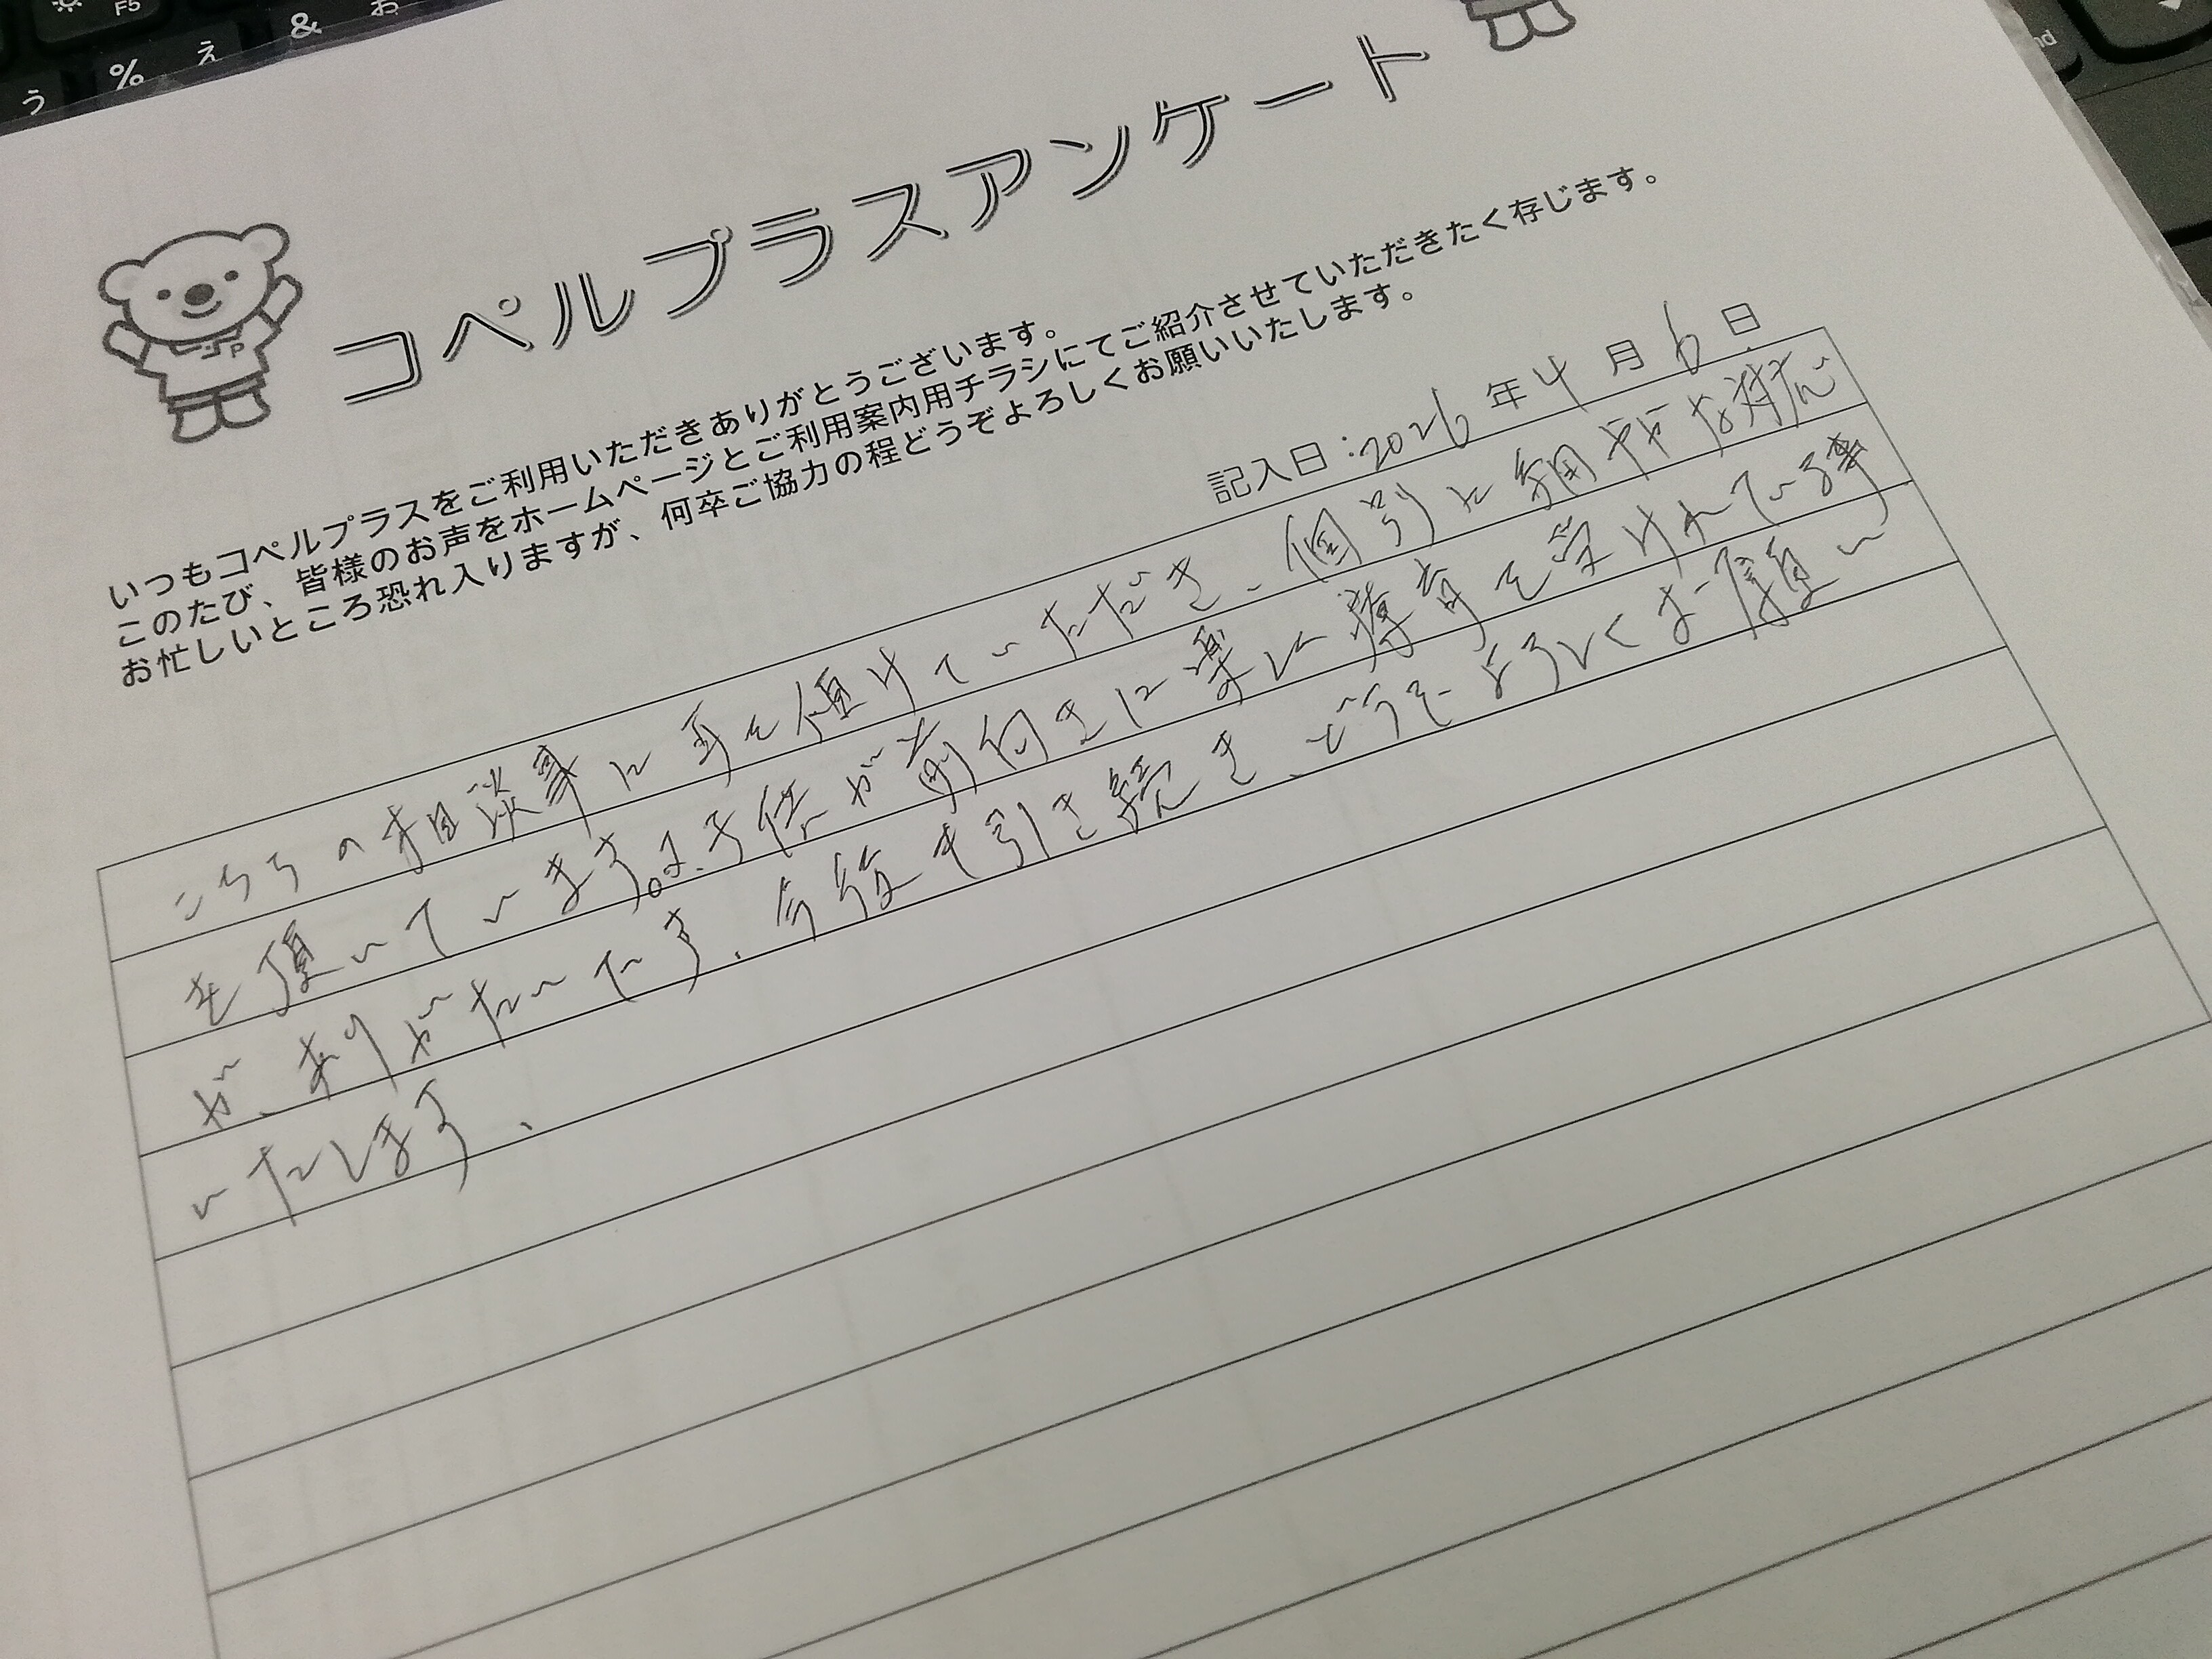 F5
う
%
え
&
お
コペルプラスアンケート
いつもコペルプラスをご利用いただきありがとうございます。
このたび、皆様のお声をホームページとご利用案内用チラシにてご紹介させていただきたく存じます。
お忙しいところ恐れ入りますが、何卒ご協力の程どうぞよろしくお願いいたします。
記入日:2026年4月6日
こちらの相談事に耳を傾けていただき、個別に細やかな対応
を頂いています。子供が前向きに楽しく療育を受けれている事
が、ありがたいです。今後も引き続き、どうぞよろしくお願い
いたします。